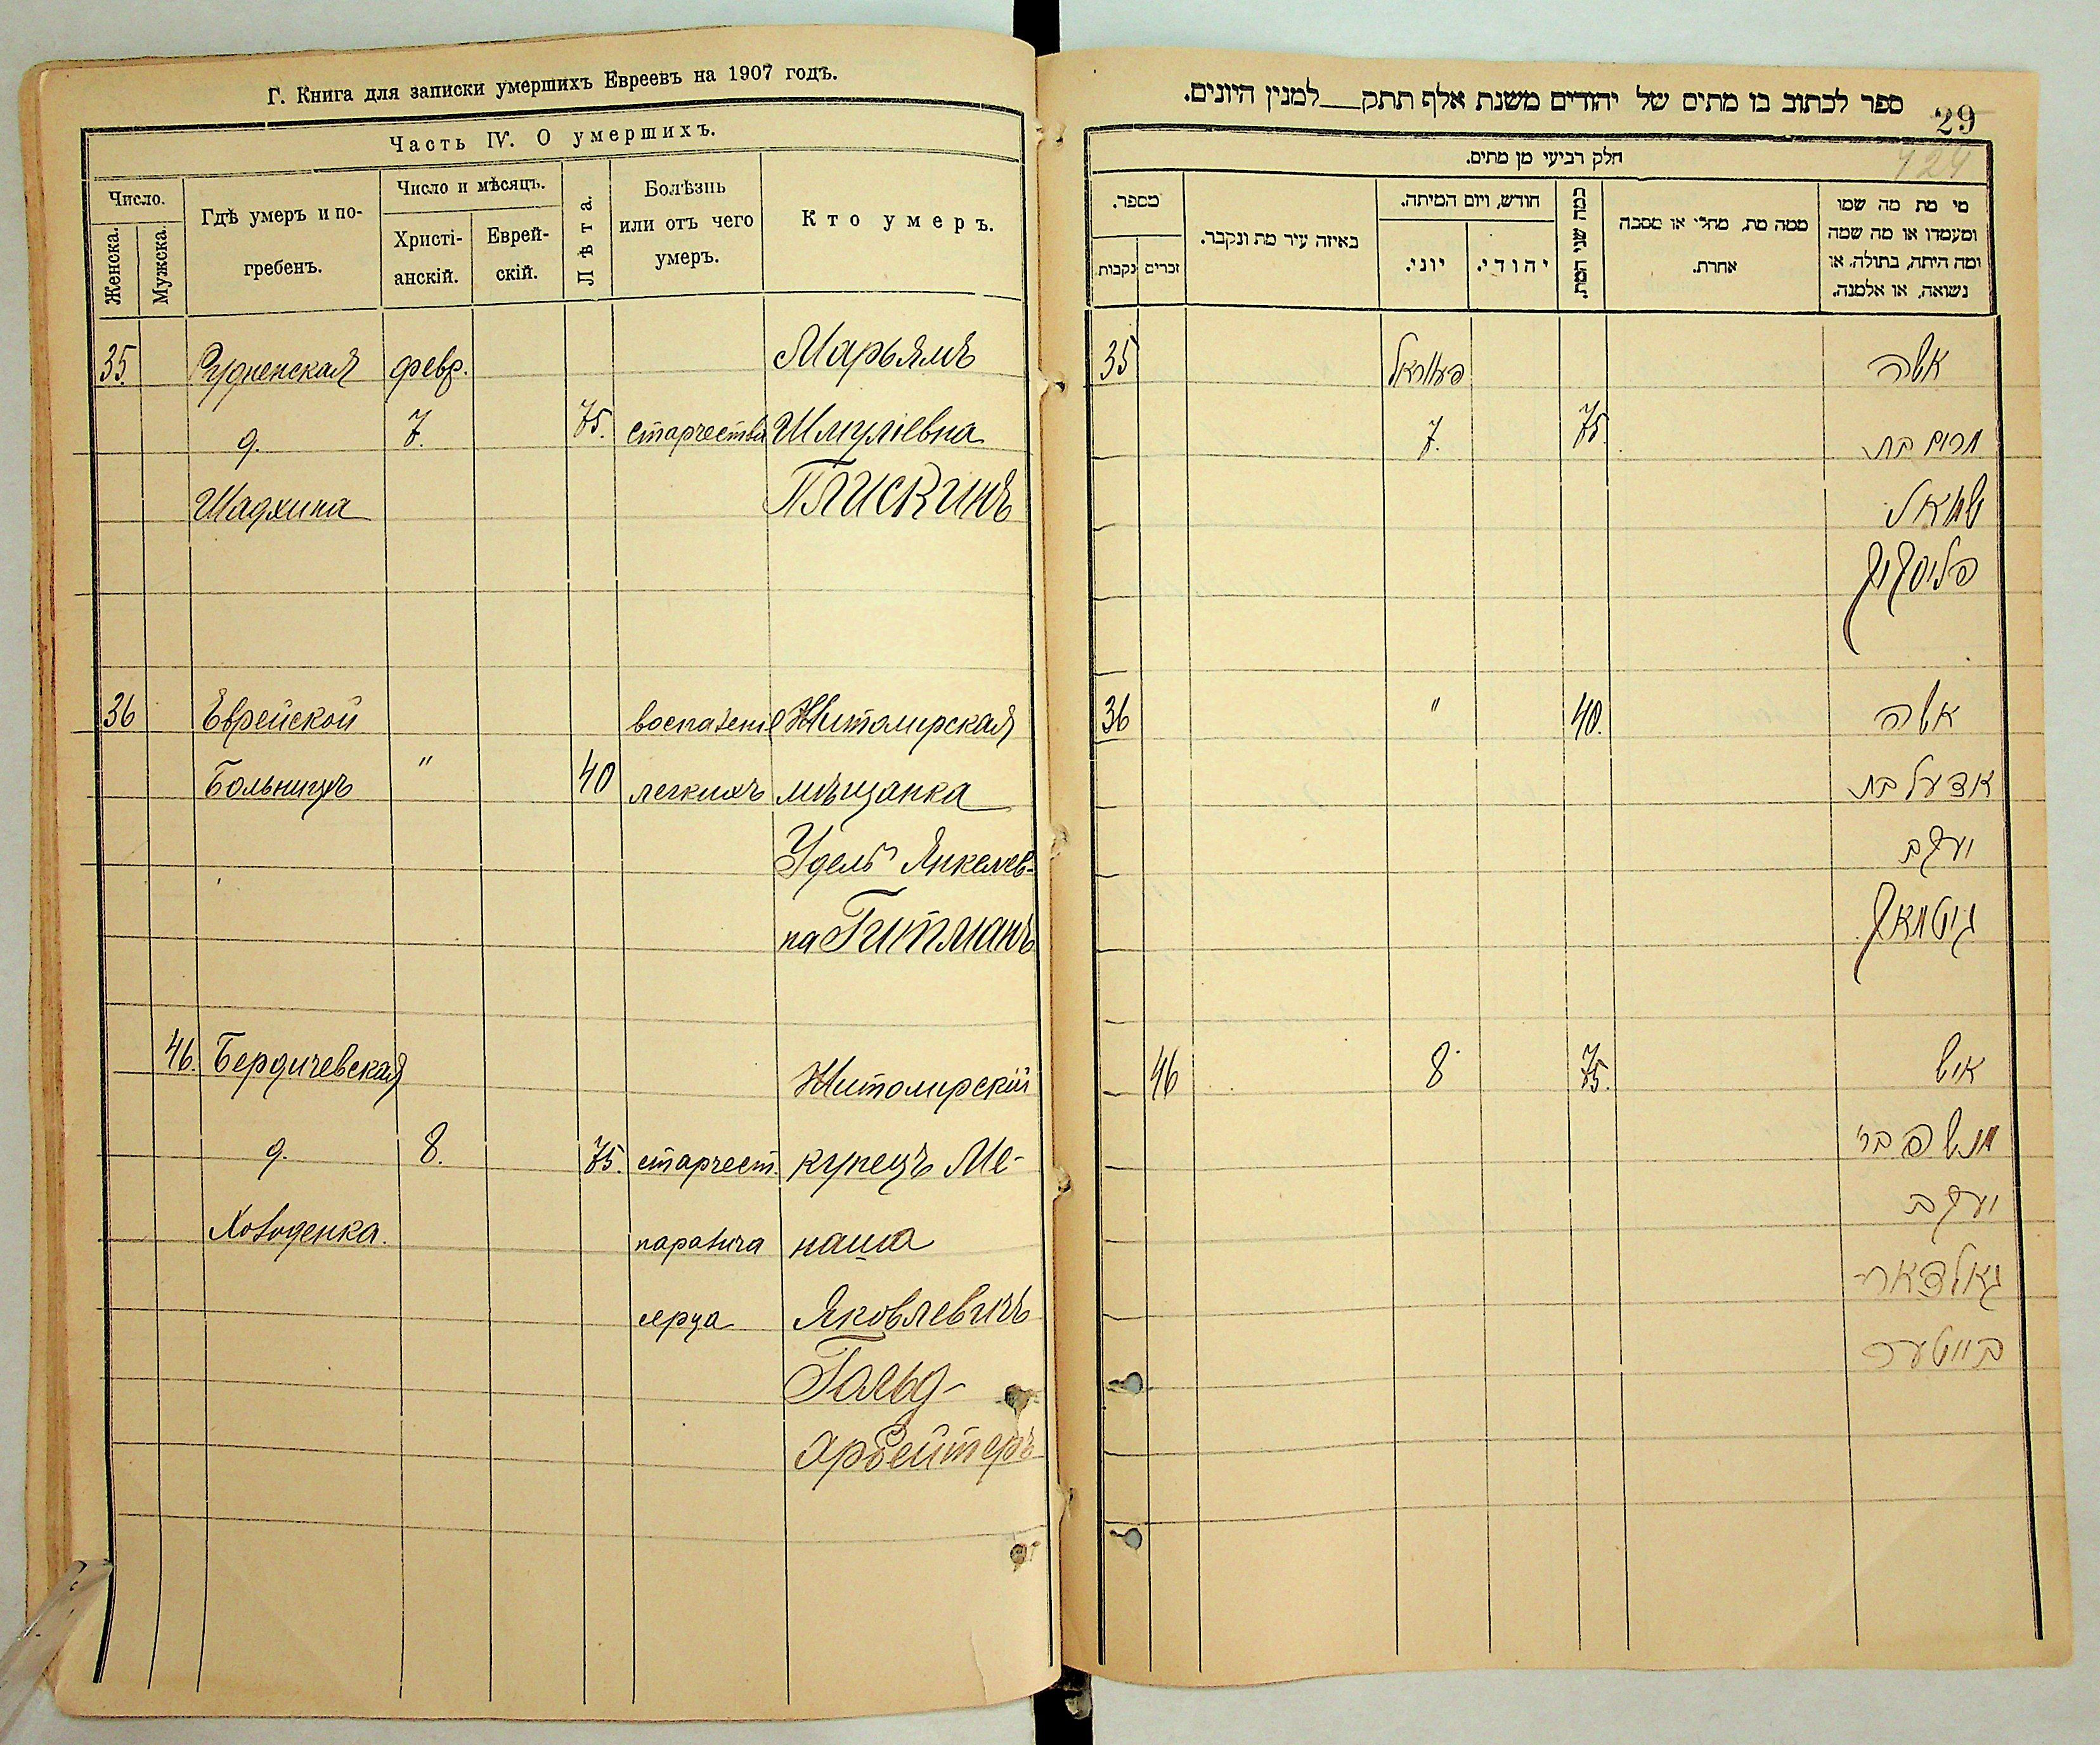 Г. Книга для записки умершихъ Евреевъ на 1907 годъ.
Часть IV. О умершихъ.
Число.
Женска.
Мужска.
Гдѣ умеръ и по-
гребенъ.
Число и мѣсяцъ.
Христі-
анскій.
Еврей-
скій.
Лѣта.
Болѣзнь
или отъ чего
умеръ.
Кто умеръ.
35. Рудненская февр. Марьямъ
д. 7. 75. старчества Шмулiевна
Шадхина Плискинъ
36 Еврейской воспаленіе Житомирская
Больницѣ " 40 легкихъ мѣщанка
Удель Янкелев-
на Гитманъ
46. Бердичевская Житомирскій
д. 8. 75. старчест. купецъ Ме-
Холоденка. паралича наша
серца Яковлевичъ
Гольд-
арбейтеръ
ספר לכתוב בו מתים של יהודים משנת אלף תתק למנין היונים.
29
חלק רביעי מן מתים.
מספר.
נקבות
זכרים
באיזה עיר מת ונקבר.
חודש, ויום המיתה.
יוני.
יהודי.
כמה שני המת.
ממה מת, מחלי או מסבה
אחרת.
מי מת מה שמו
ומעמדו או מה שמה
ומה היתה, בתולה, או
נשואה, או אלמנה.
35 פעוראל אשה
7. 75. מרים בת
שמואל
פליסקין
36 " 40. אשה
אדעל בת
יעקב
גיטמאן
46 8 75. איש
מנשה בר'
יעקב
גאלדאר
בייטער